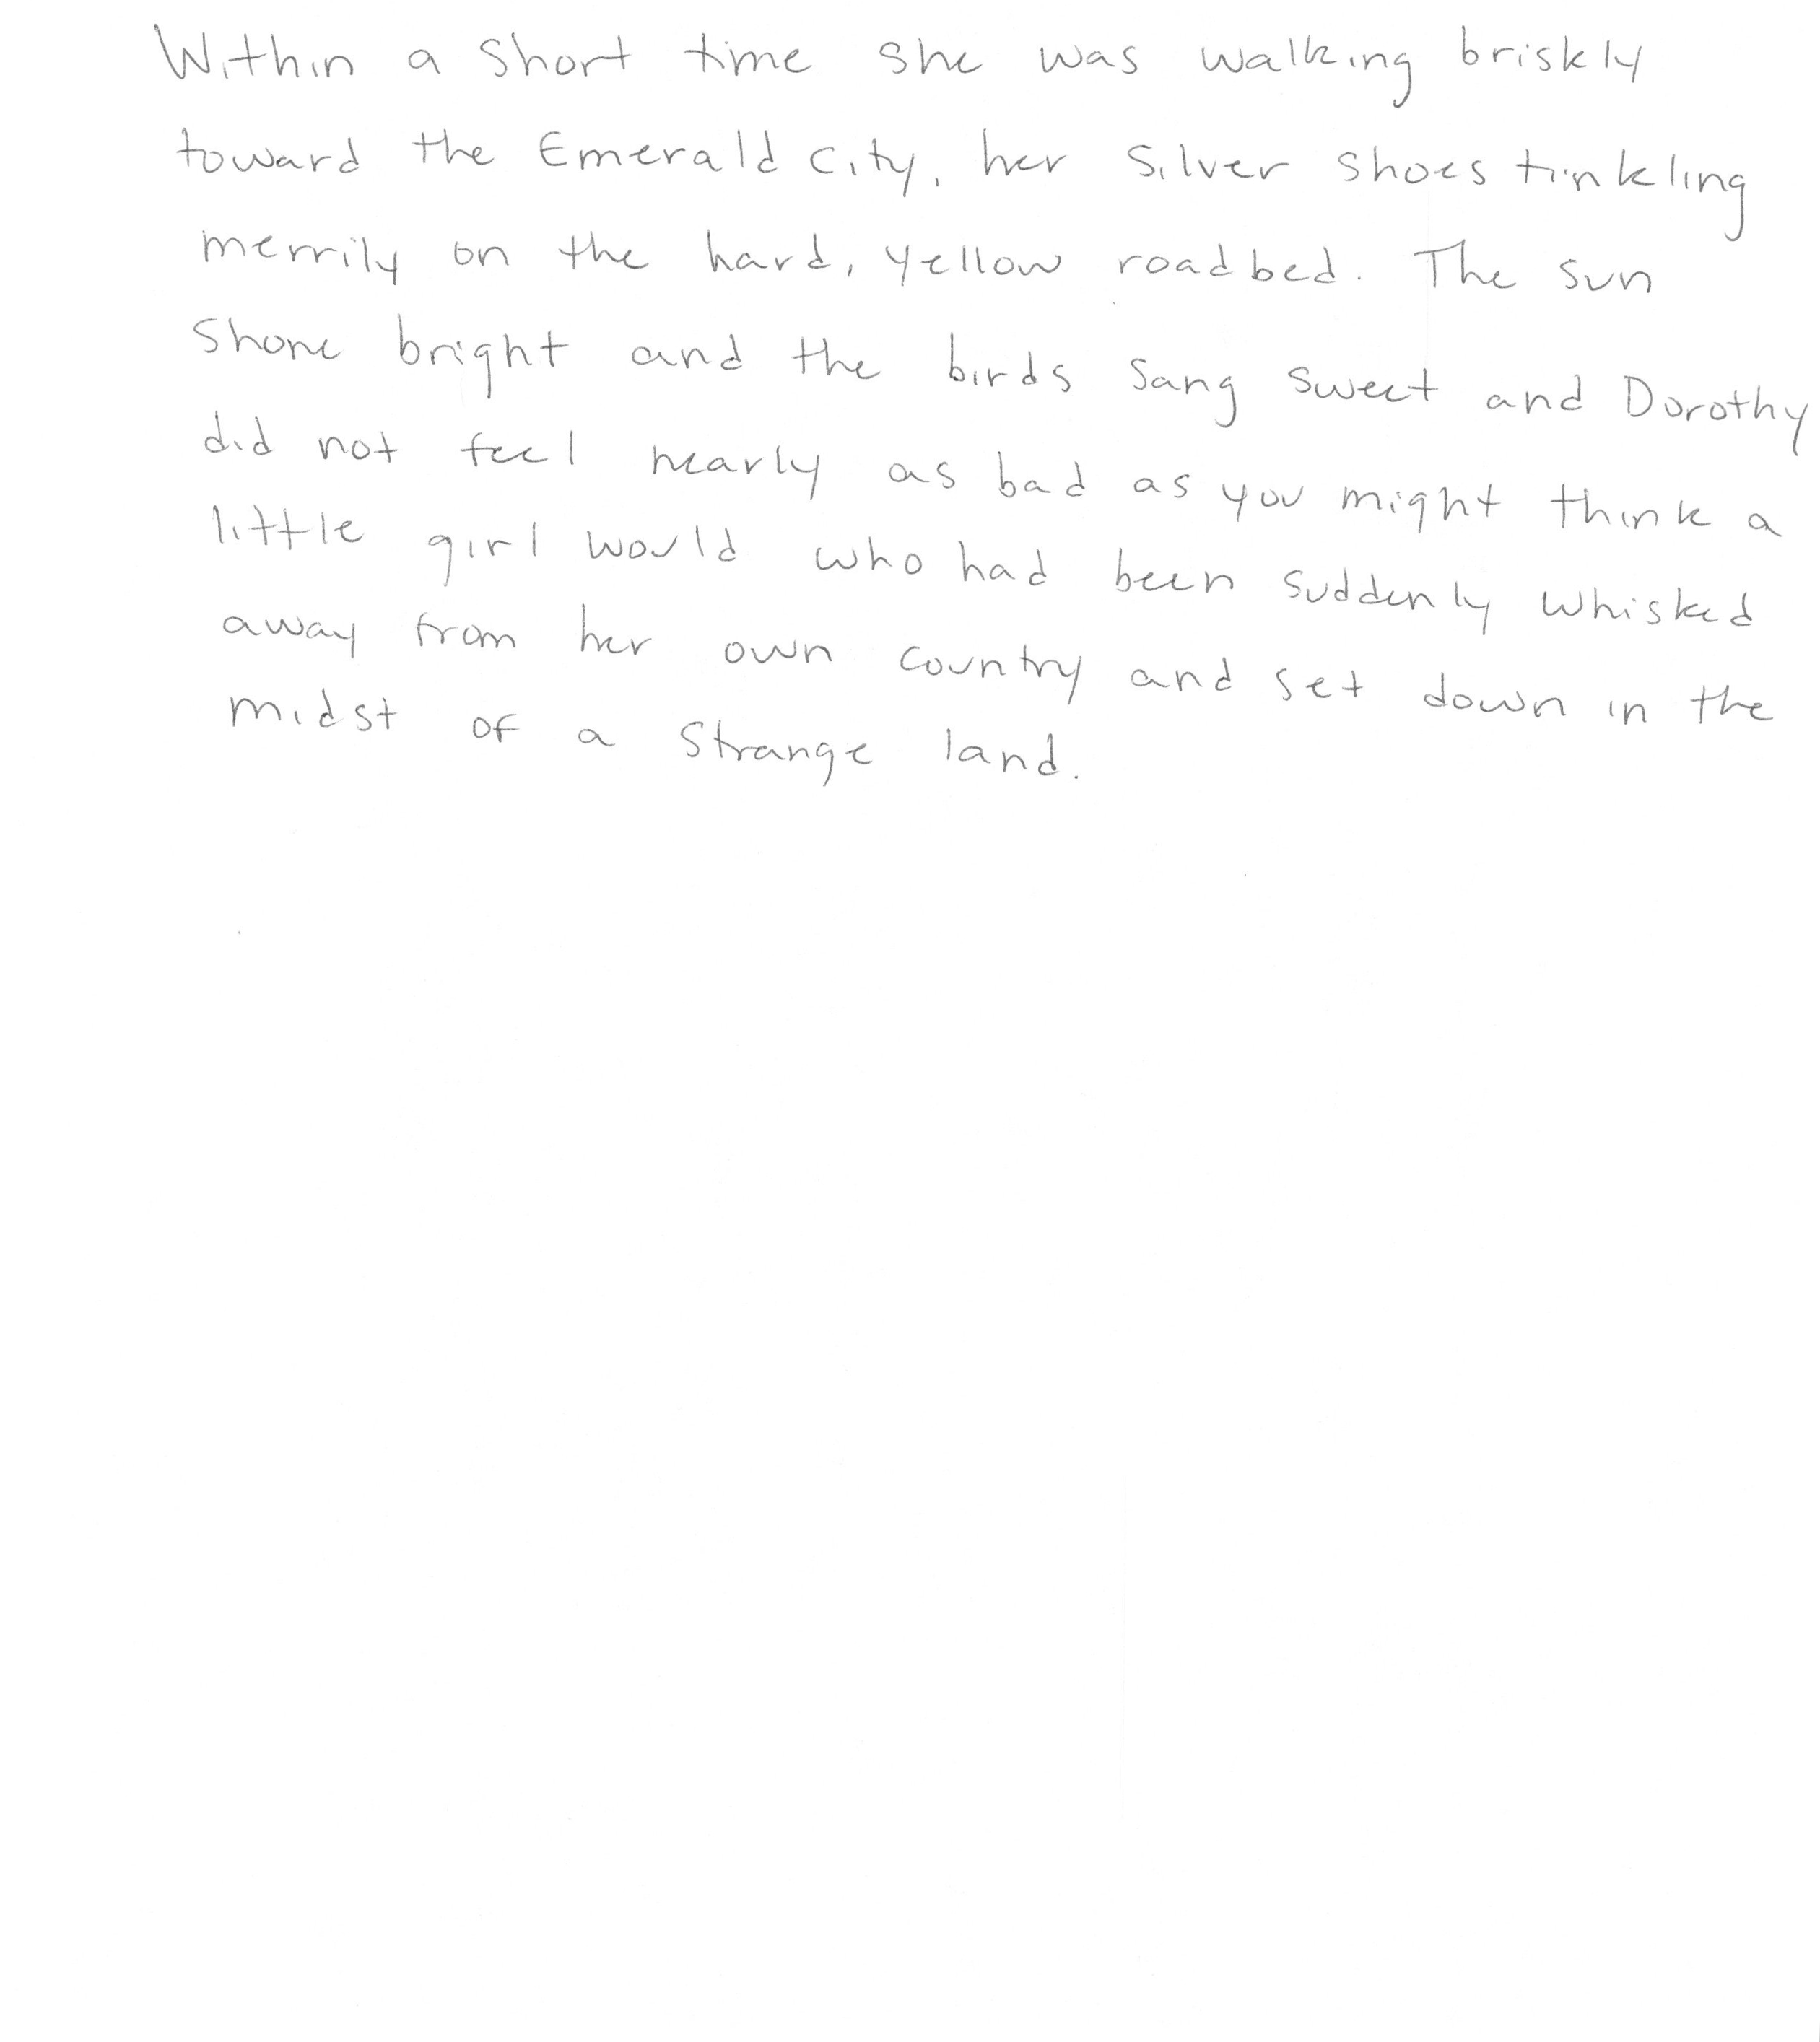 Within a short time she was walking briskly
toward the Emerald City, her silver shoes tinkling
merrily on the hard, yellow roadbed. The sun
shone bright and the birds sang sweet and Dorothy
did not feel nearly as bad as you might think a
little girl would who had been suddenly whisked
away from her own country and set down in the
midst of a strange land.